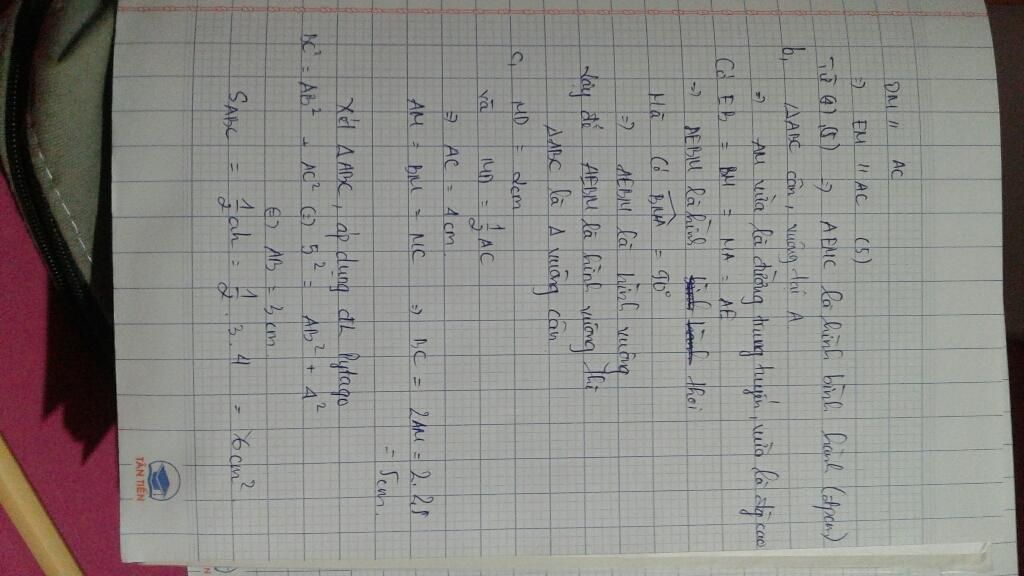 DM // AC
⇒ EM // AC (5)
Từ (4) (5) ⇒ AEMC là hình bình hành (đpcm)
b, ΔABC cân, vuông tại A
⇒ AM vừa là đường trung tuyến, vừa là đg cao
Có EB = BM = MA = AE
⇒ AEBM là hình thoi
Mà có BMA = 90°
⇒ AEBM là hình vuông
Vậy để AEBM là hình vuông thì
ΔABC là Δ vuông cân
c, MD = 2cm
và MD = 1/2 AC
⇒ AC = 4cm
AM = BM = MC ⇒ BC = 2AM = 2.2,5
= 5cm.
Xét ΔABC, áp dụng đl Pytago
BC² = AB² + AC² (=) 5² = AB² + 4²
(=) AB = 3cm
SABC = 1/2 ah = 1/2 . 3. 4 = 6cm²
TÂN TIẾN